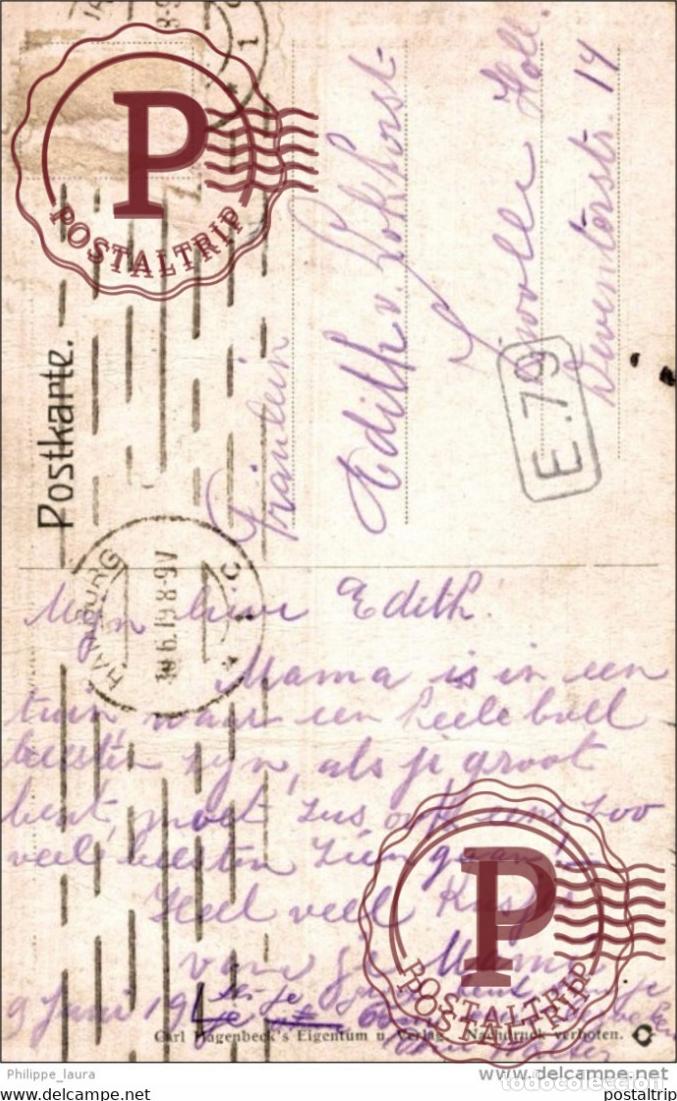 Postkarte.
HAMBURG
10.6.19.8-9V
Fräulein
Edith v. Lokhorst
Zwolle Holl.
Deventerstr. 14
E.79
Mijn lieve Edith.
Mama is in een
tuin, waar een heele boel
beesten zijn, als je groot
bent, moet Zus ook eens zoo
veel beesten zien gaan!
Heel veel Kusjes
van je Mama
9 Juni 19
Carl Hagenbeck's Eigentum u. Verlag. Nachdruck verboten.
P
POSTALTRIP
P
POSTALTRIP
POSTALTRIP
www.delcampe.net
todocoleccion
Philippe_laura
postaltrip